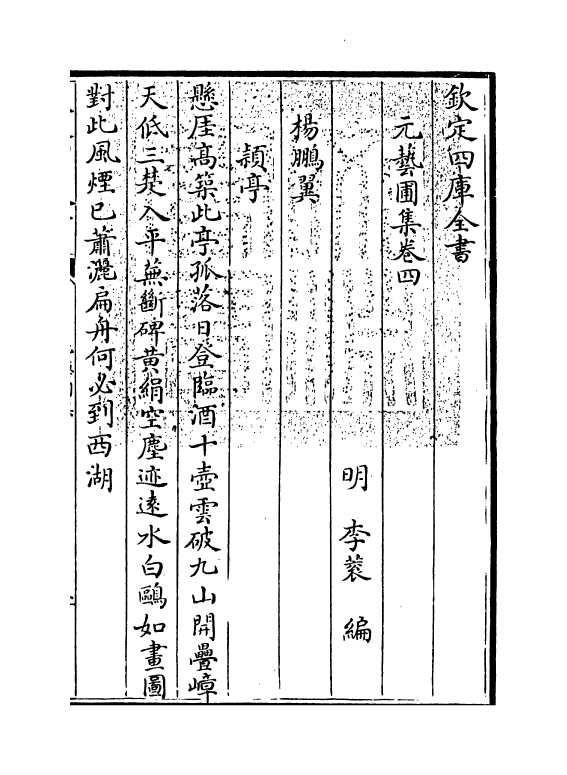 欽定四庫全書
元藝圃集卷四
明 李蓘 編
楊鵬翼
潁亭
懸厓高築此亭孤落日登臨酒十壺雲破九山開疊嶂
天低三楚入平蕪斷碑黄絹空塵迹逺水白鷗如畫圖
對此風煙已蕭灑扁舟何必到西湖